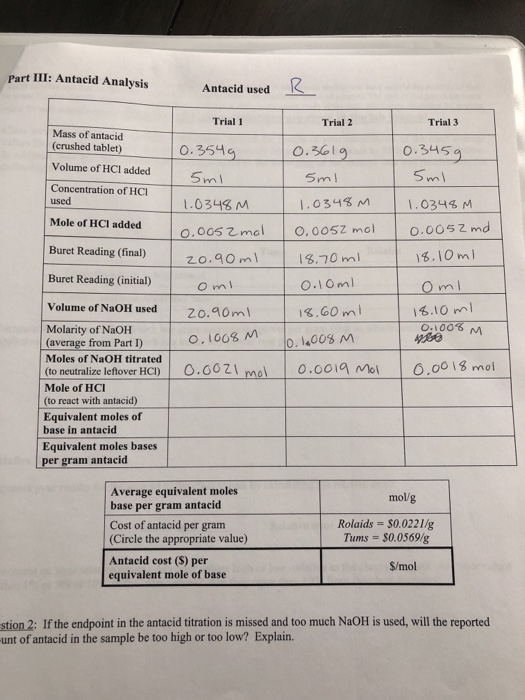 Part III: Antacid Analysis Antacid used R
Trial 1 Trial 2 Trial 3
Mass of antacid
(crushed tablet) 0.354g 0.361g 0.345g
Volume of HCl added 5ml 5ml 5ml
Concentration of HCl
used 1.0348 M 1.0348 M 1.0348 M
Mole of HCl added 0.0052 mol 0.0052 mol 0.0052 mol
Buret Reading (final) 20.90ml 18.70ml 18.10ml
Buret Reading (initial) 0ml 0.10ml 0ml
Volume of NaOH used 20.90ml 18.60ml 18.10ml
Molarity of NaOH
(average from Part I) 0.1008 M 0.1008 M 0.1008 M
Moles of NaOH titrated
(to neutralize leftover HCl) 0.0021 mol 0.0019 Mol 0.0018 mol
Mole of HCl
(to react with antacid)
Equivalent moles of
base in antacid
Equivalent moles bases
per gram antacid
Average equivalent moles
base per gram antacid mol/g
Cost of antacid per gram
(Circle the appropriate value) Rolaids = $0.0221/g
Tums = $0.0569/g
Antacid cost ($) per
equivalent mole of base $/mol
stion 2: If the endpoint in the antacid titration is missed and too much NaOH is used, will the reported
unt of antacid in the sample be too high or too low? Explain.